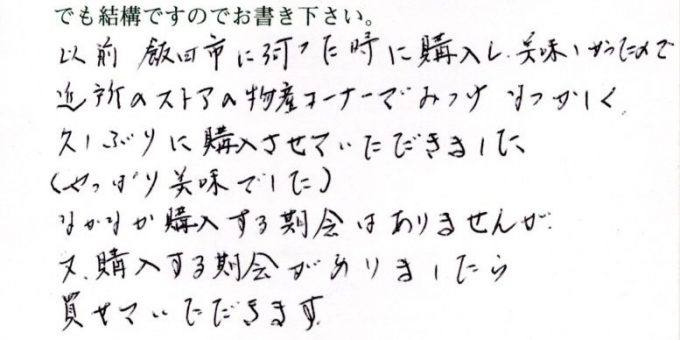 でも結構ですのでお書き下さい。
以前 飯田市に行った時に購入し、美味しかったので
近所のストアの物産コーナーでみつけ なつかしく、
久しぶりに購入させていただきました、
(やっぱり美味でした)
なかなか購入する期会はありませんが、
又、購入する期会がありましたら
買せていただきます。